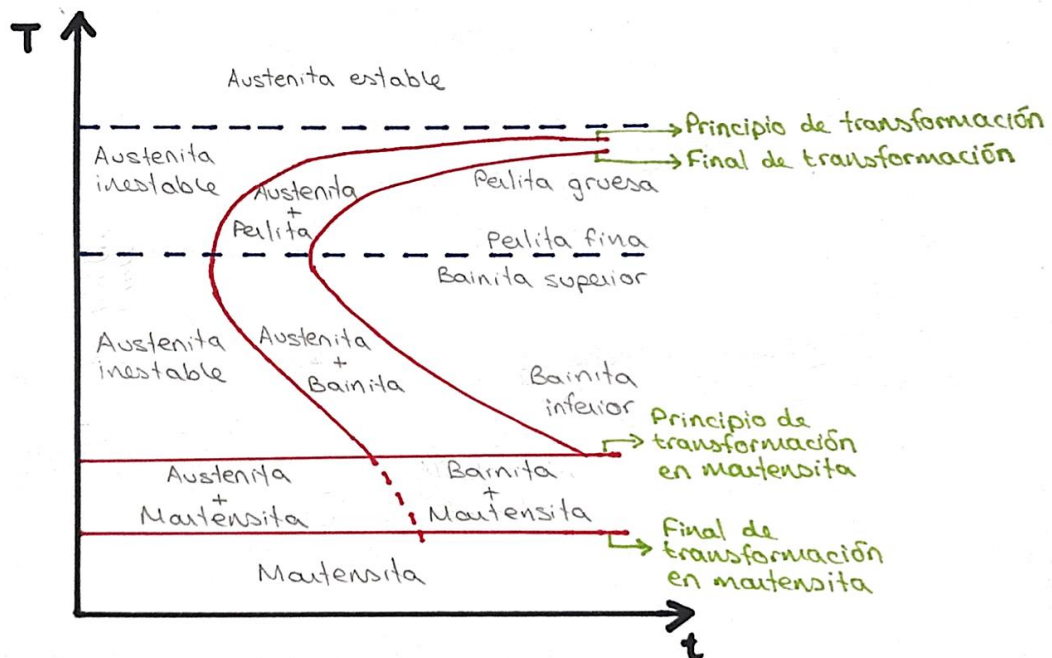 T
Austenita estable
Principio de transformación
Final de transformación
Austenita
inestable
Austenita
+
Perlita
Perlita gruesa
Perlita fina
Bainita superior
Austenita
inestable
Austenita
+
Bainita
Bainita
inferior
Principio de
transformación
en martensita
Austenita
+
Martensita
Bainita
+
Martensita
Final de
transformación
en martensita
Martensita
t